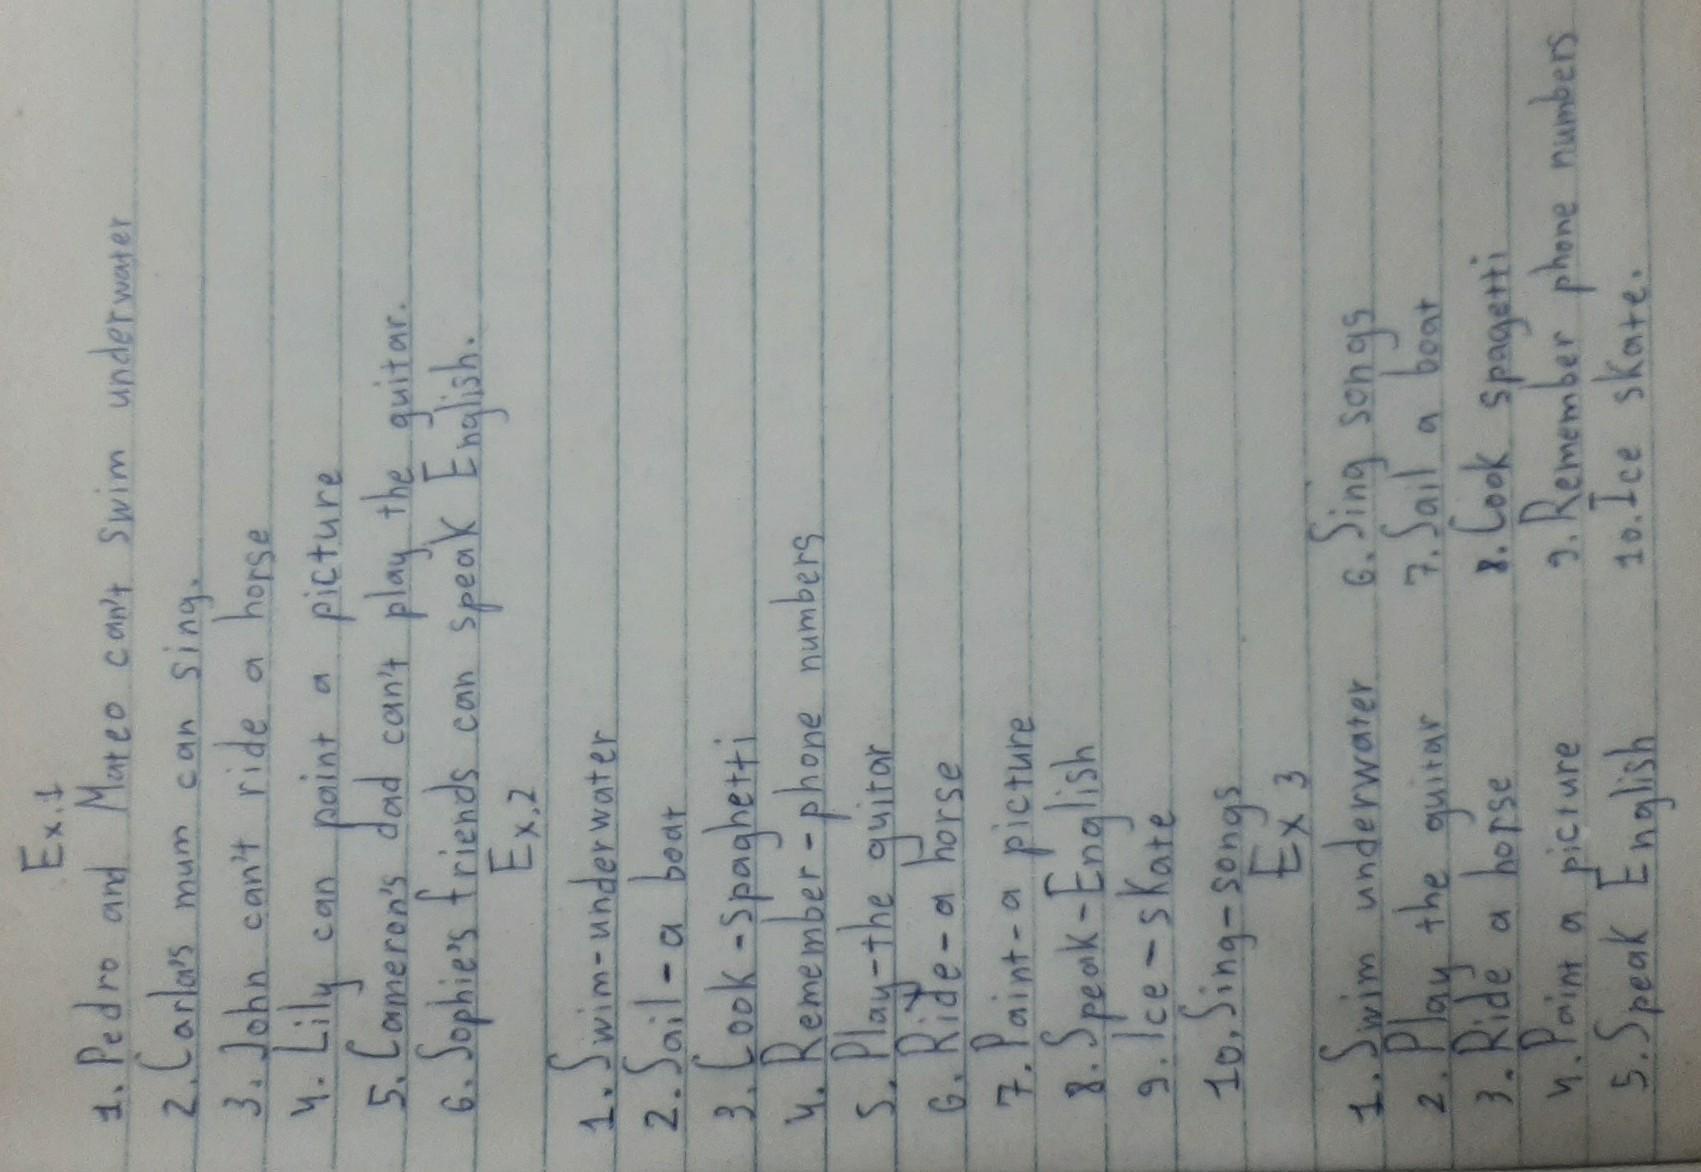 Ex.1
1. Pedro and Mateo can't swim underwater
2. Carla's mum can sing.
3. John can't ride a horse
4. Lily can paint a picture
5. Cameron's dad can't play the guitar.
6. Sophie's friends can speak English.
Ex.2
1. Swim-underwater
2. Sail-a boat
3. Cook-spaghetti
4. Remember-phone numbers
5. Play-the guitar
6. Ride-a horse
7. Paint-a picture
8. Speak-English
9. Ice-skate
10. Sing-songs
Ex 3
1. Swim underwater 6. Sing songs
2. Play the guitar 7. Sail a boat
3. Ride a horse 8. Cook spagetti
4. Paint a picture 9. Remember phone numbers
5. Speak English 10. Ice skate.